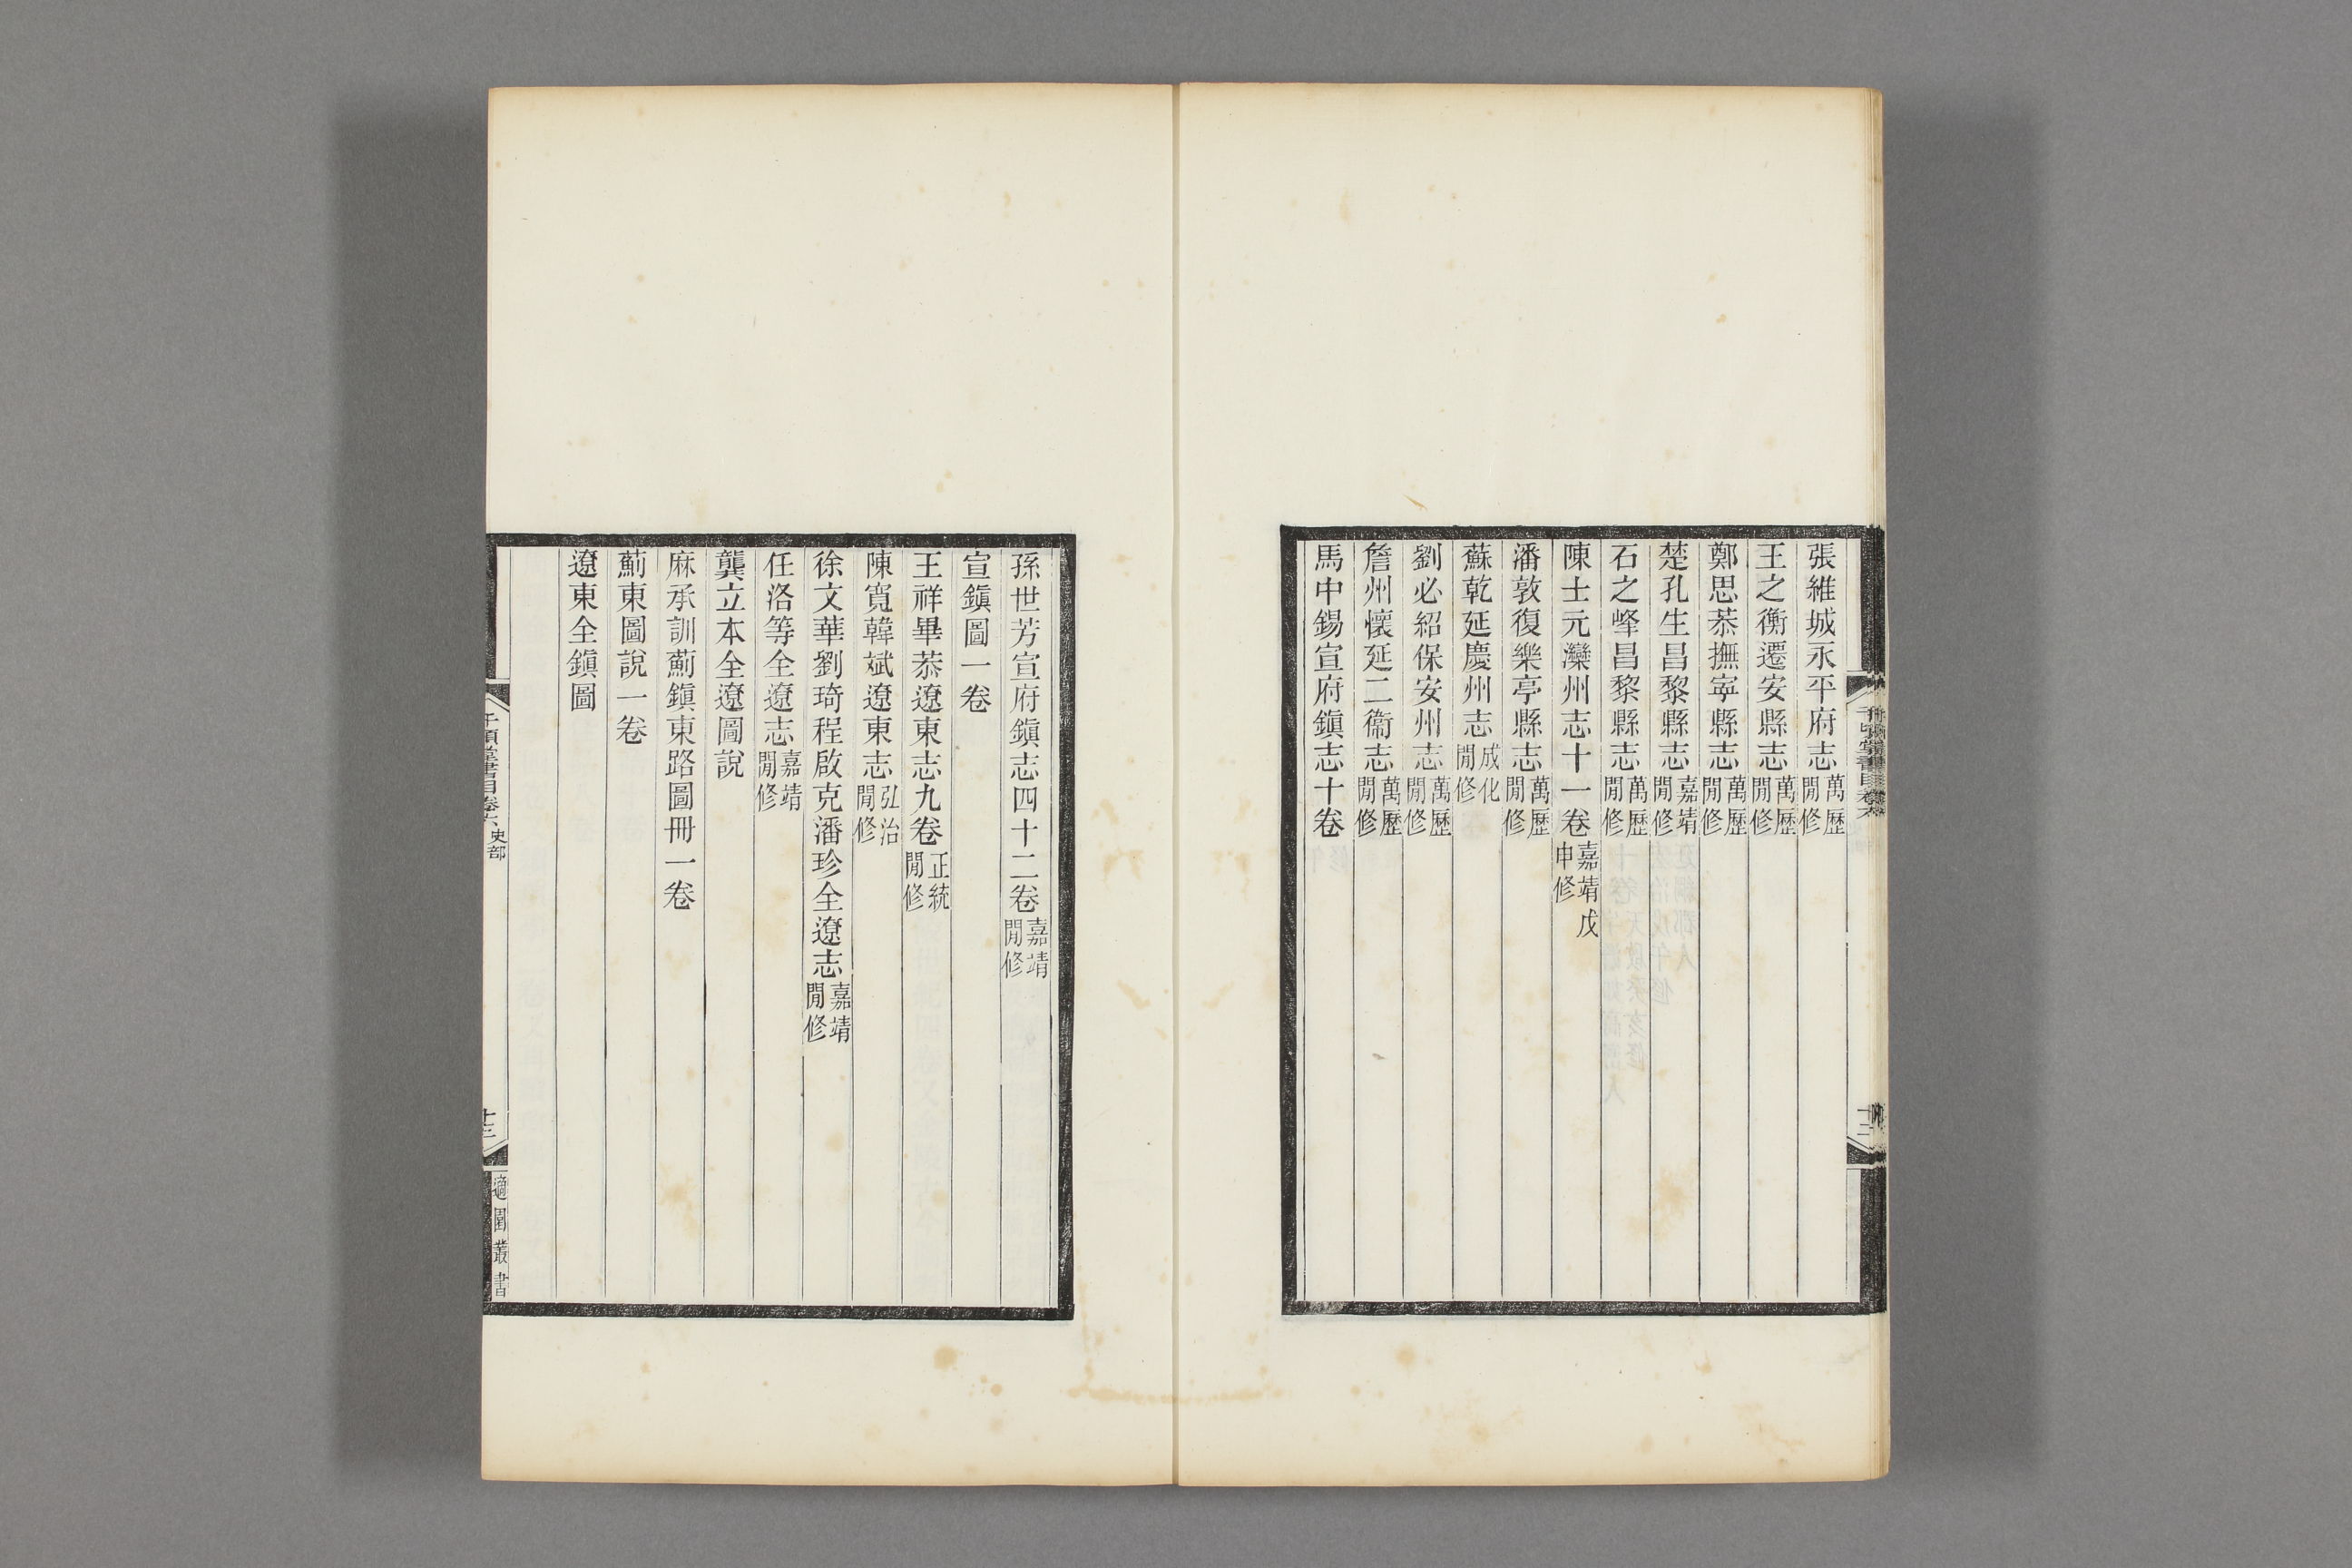 張維城永平府志萬歷閒修
王之衡遷安縣志萬歷閒修
鄭思恭撫寧縣志萬歷閒修
楚孔生昌黎縣志嘉靖閒修
石之峰昌黎縣志萬歷閒修
陳士元灤州志十一卷嘉靖戊申修
潘敦復樂亭縣志萬歷閒修
蘇乾延慶州志成化閒修
劉必紹保安州志萬歷閒修
詹州懷延二衞志萬歷閒修
馬中錫宣府鎭志十卷
孫世芳宣府鎭志四十二卷嘉靖閒修
宣鎭圖一卷
王祥畢恭遼東志九卷正統閒修
陳寬韓斌遼東志弘治閒修
徐文華劉琦程啟克潘珍全遼志嘉靖閒修
任洛等全遼志嘉靖閒修
龔立本全遼圖說
麻承訓薊鎭東路圖冊一卷
薊東圖說一卷
遼東全鎭圖
千頃堂書目卷六 史部
十三
適園叢書